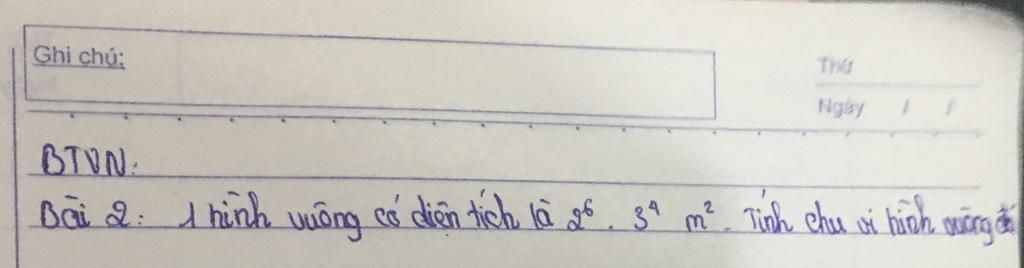 Ghi chú:
Thứ
Ngày / /
BTVN:
Bài 2: 1 hình vuông có diện tích là 2⁶. 3⁴ m². Tính chu vi hình vuông đó